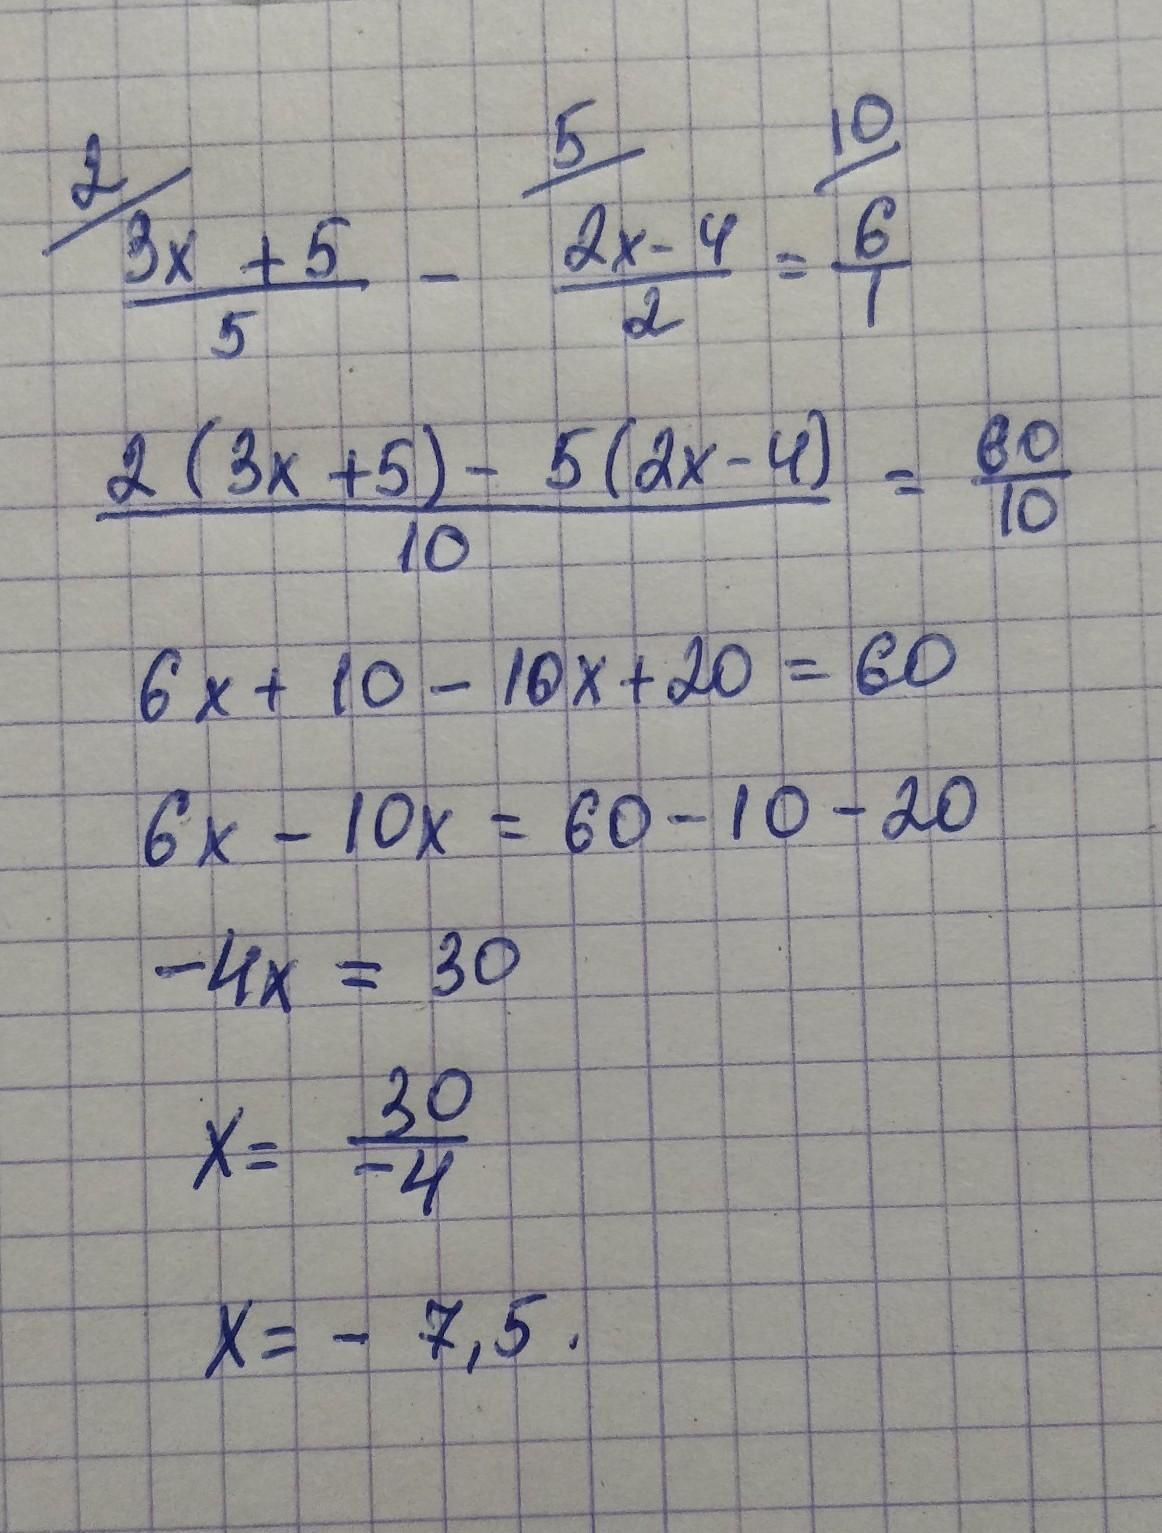 2/ 5/ 10/
(3x + 5)/5 - (2x - 4)/2 = 6/1
(2(3x + 5) - 5(2x - 4))/10 = 60/10
6x + 10 - 10x + 20 = 60
6x - 10x = 60 - 10 - 20
-4x = 30
x = 30/-4
x = - 7,5.